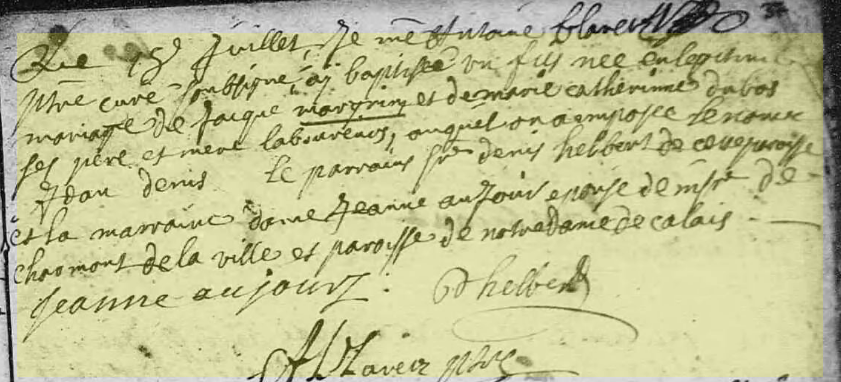 Le 15e Juillet, Je me Antoine Clave
ptre curé soussigné, ai baptisée un fils née en legitime
mariage de Jacque margrin et de marie catherinne dubos
ses pere et mere laboureurs, auquel on a imposée le nom de
Jean denis Le parrains sr denis helbert de cette paroisse
et la marraine dame Jeanne aujour epouse de msr de
chaomont de la ville et paroisse de notre dame de calais.
Jeanne aujour. D helber
ptre